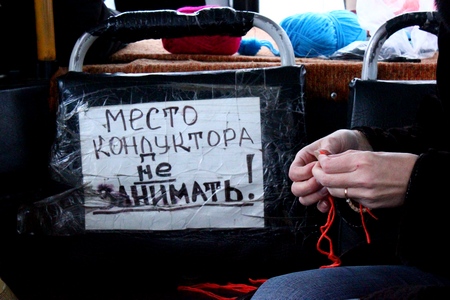 МЕСТО
КОНДУКТОРА
не
ЗАНИМАТЬ!